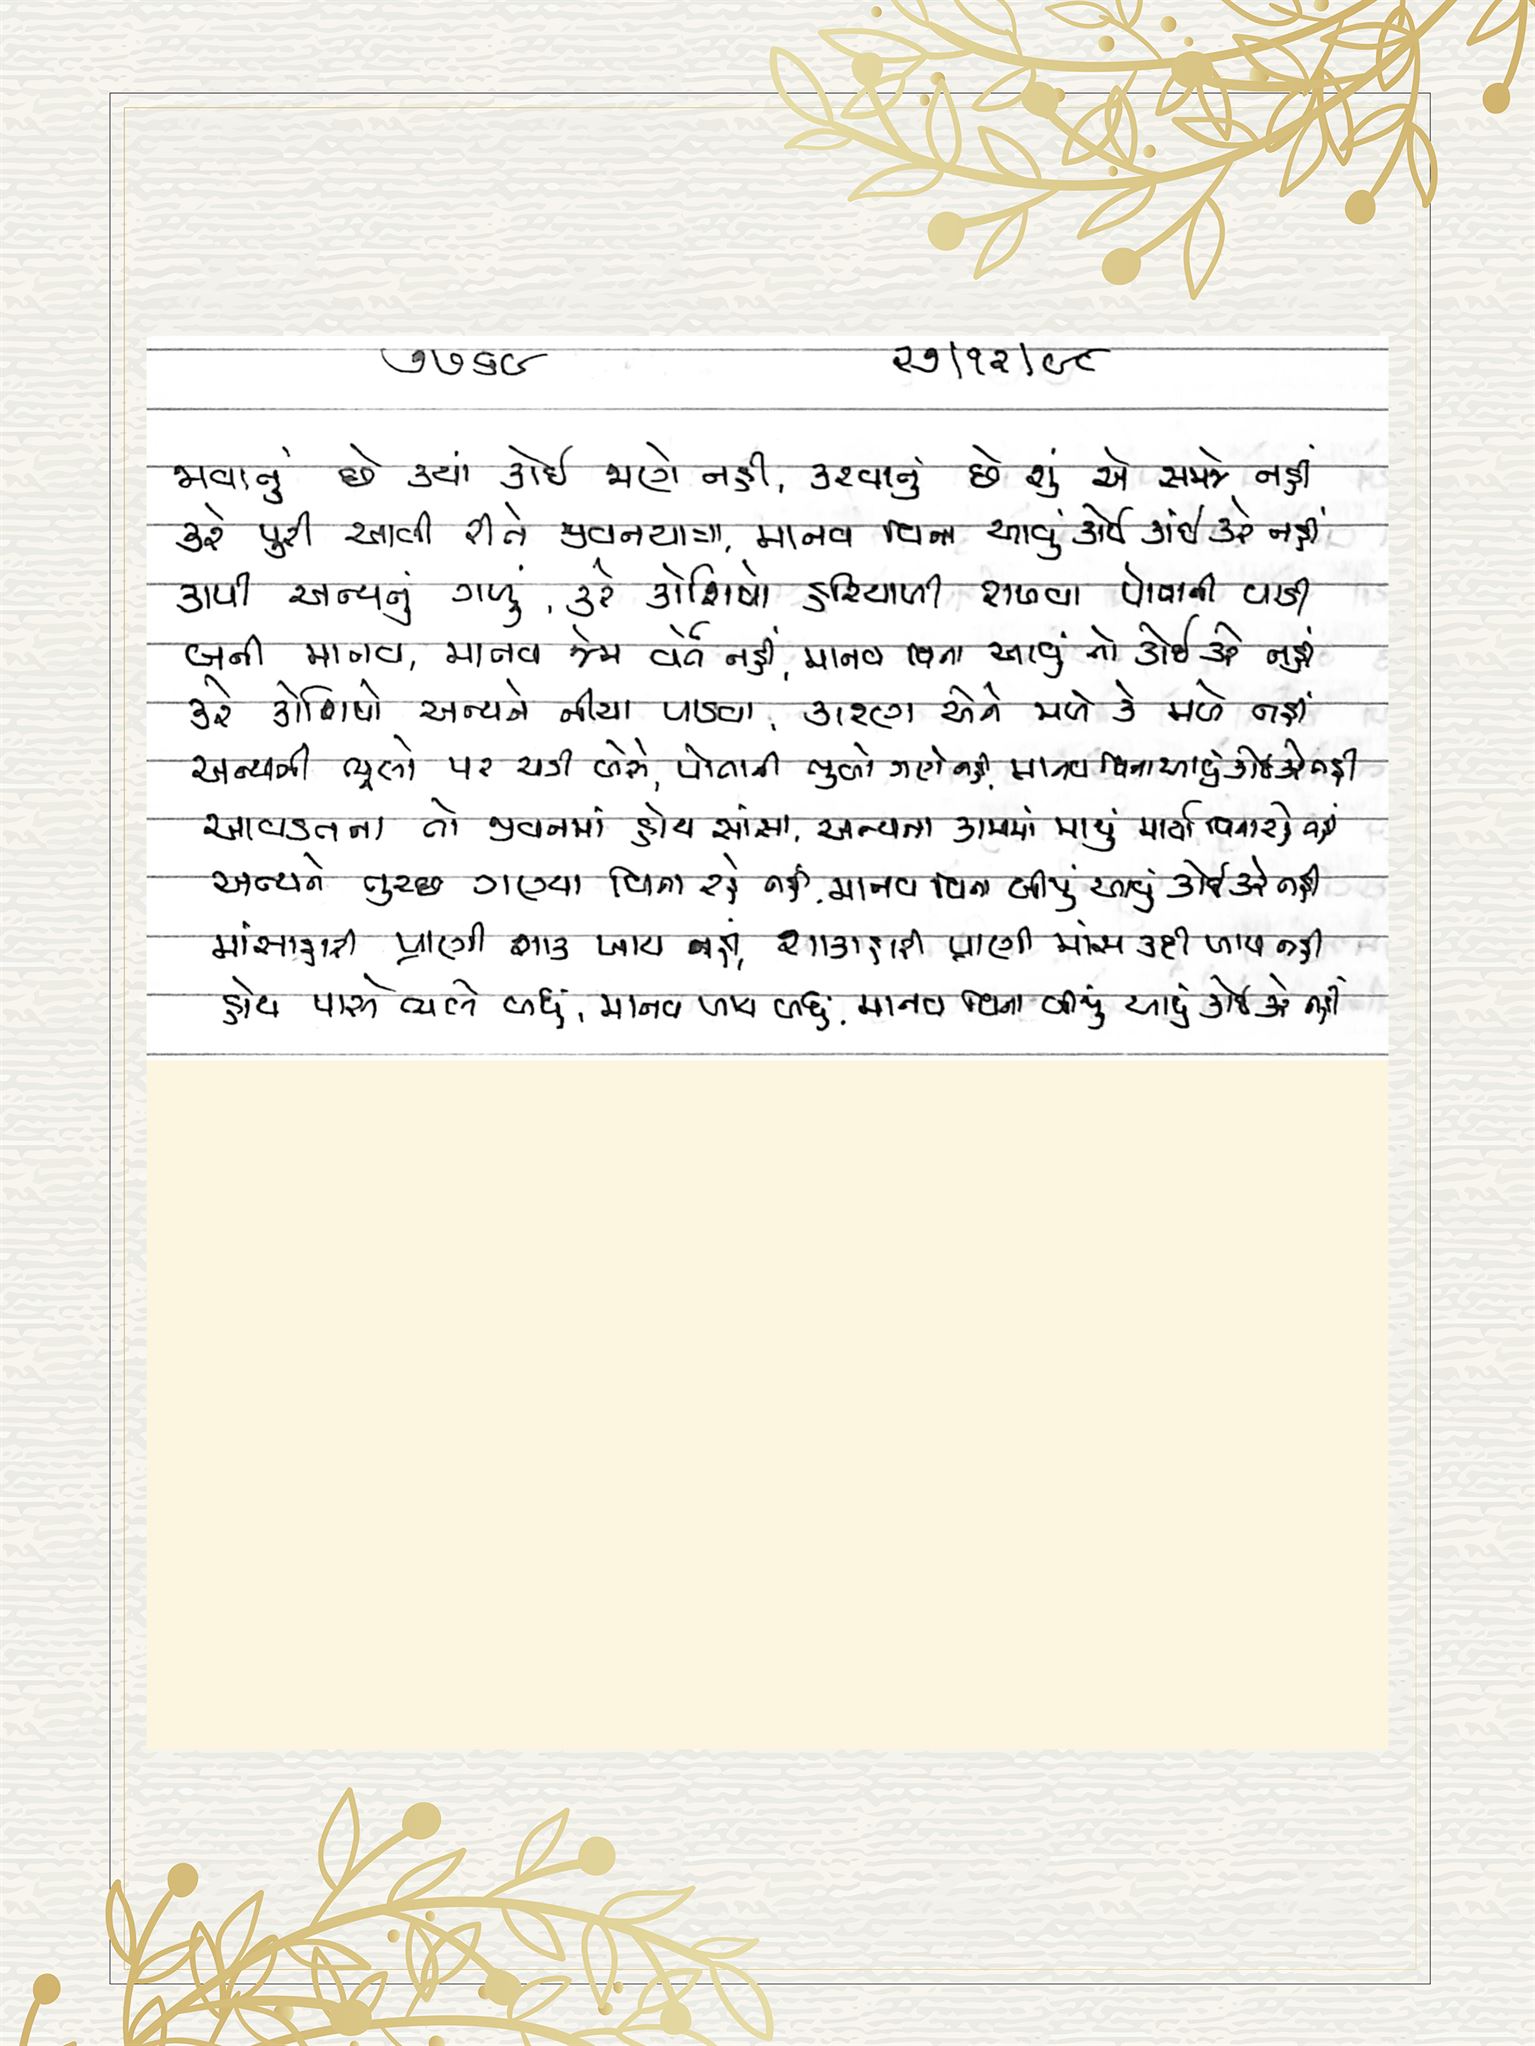 ૭૭૬૯ ૨૭/૧૨/૯૮
જવાનું છે ક્યાં કોઈ જાણે નહીં, કરવાનું છે શું એ સમજે નહીં
કરે પુરી ખાલી રીતે જીવનયાત્રા, માનવ વિના આવું કોઈ કાંઈ કરે નહીં
કાપી અન્યનું ગળું, કરે કોશિષો હરિયાળી રાખવા પોતાની વાડી
બની માનવ, માનવ જેમ વર્તે નહીં, માનવ વિના આવું તો કોઈ કરે નહીં
કરે કોશિષો અન્યને નીચા પાડવા, કારણ એને મળે કે મળે નહીં
અન્યની ભૂલો પર ચડી બેસે, પોતાની ભુલો ગણે નહીં, માનવ વિના આવું કોઈ કરે નહીં
આવડતના તો જીવનમાં હોય સાંસા, અન્યના કામમાં માથું માર્યા વિના રહે નહીં
અન્યને તુચ્છ ગણ્યા વિના રહે નહીં, માનવ વિના બીજું આવું કોઈ કરે નહીં
માંસાહારી પ્રાણી શાક ખાય નહીં, શાકાહારી પ્રાણી માંસ કદી ખાય નહીં
હોય પાસે ભલે બધું, માનવ ખાય બધું, માનવ વિના બીજું આવું કોઈ કરે નહીં